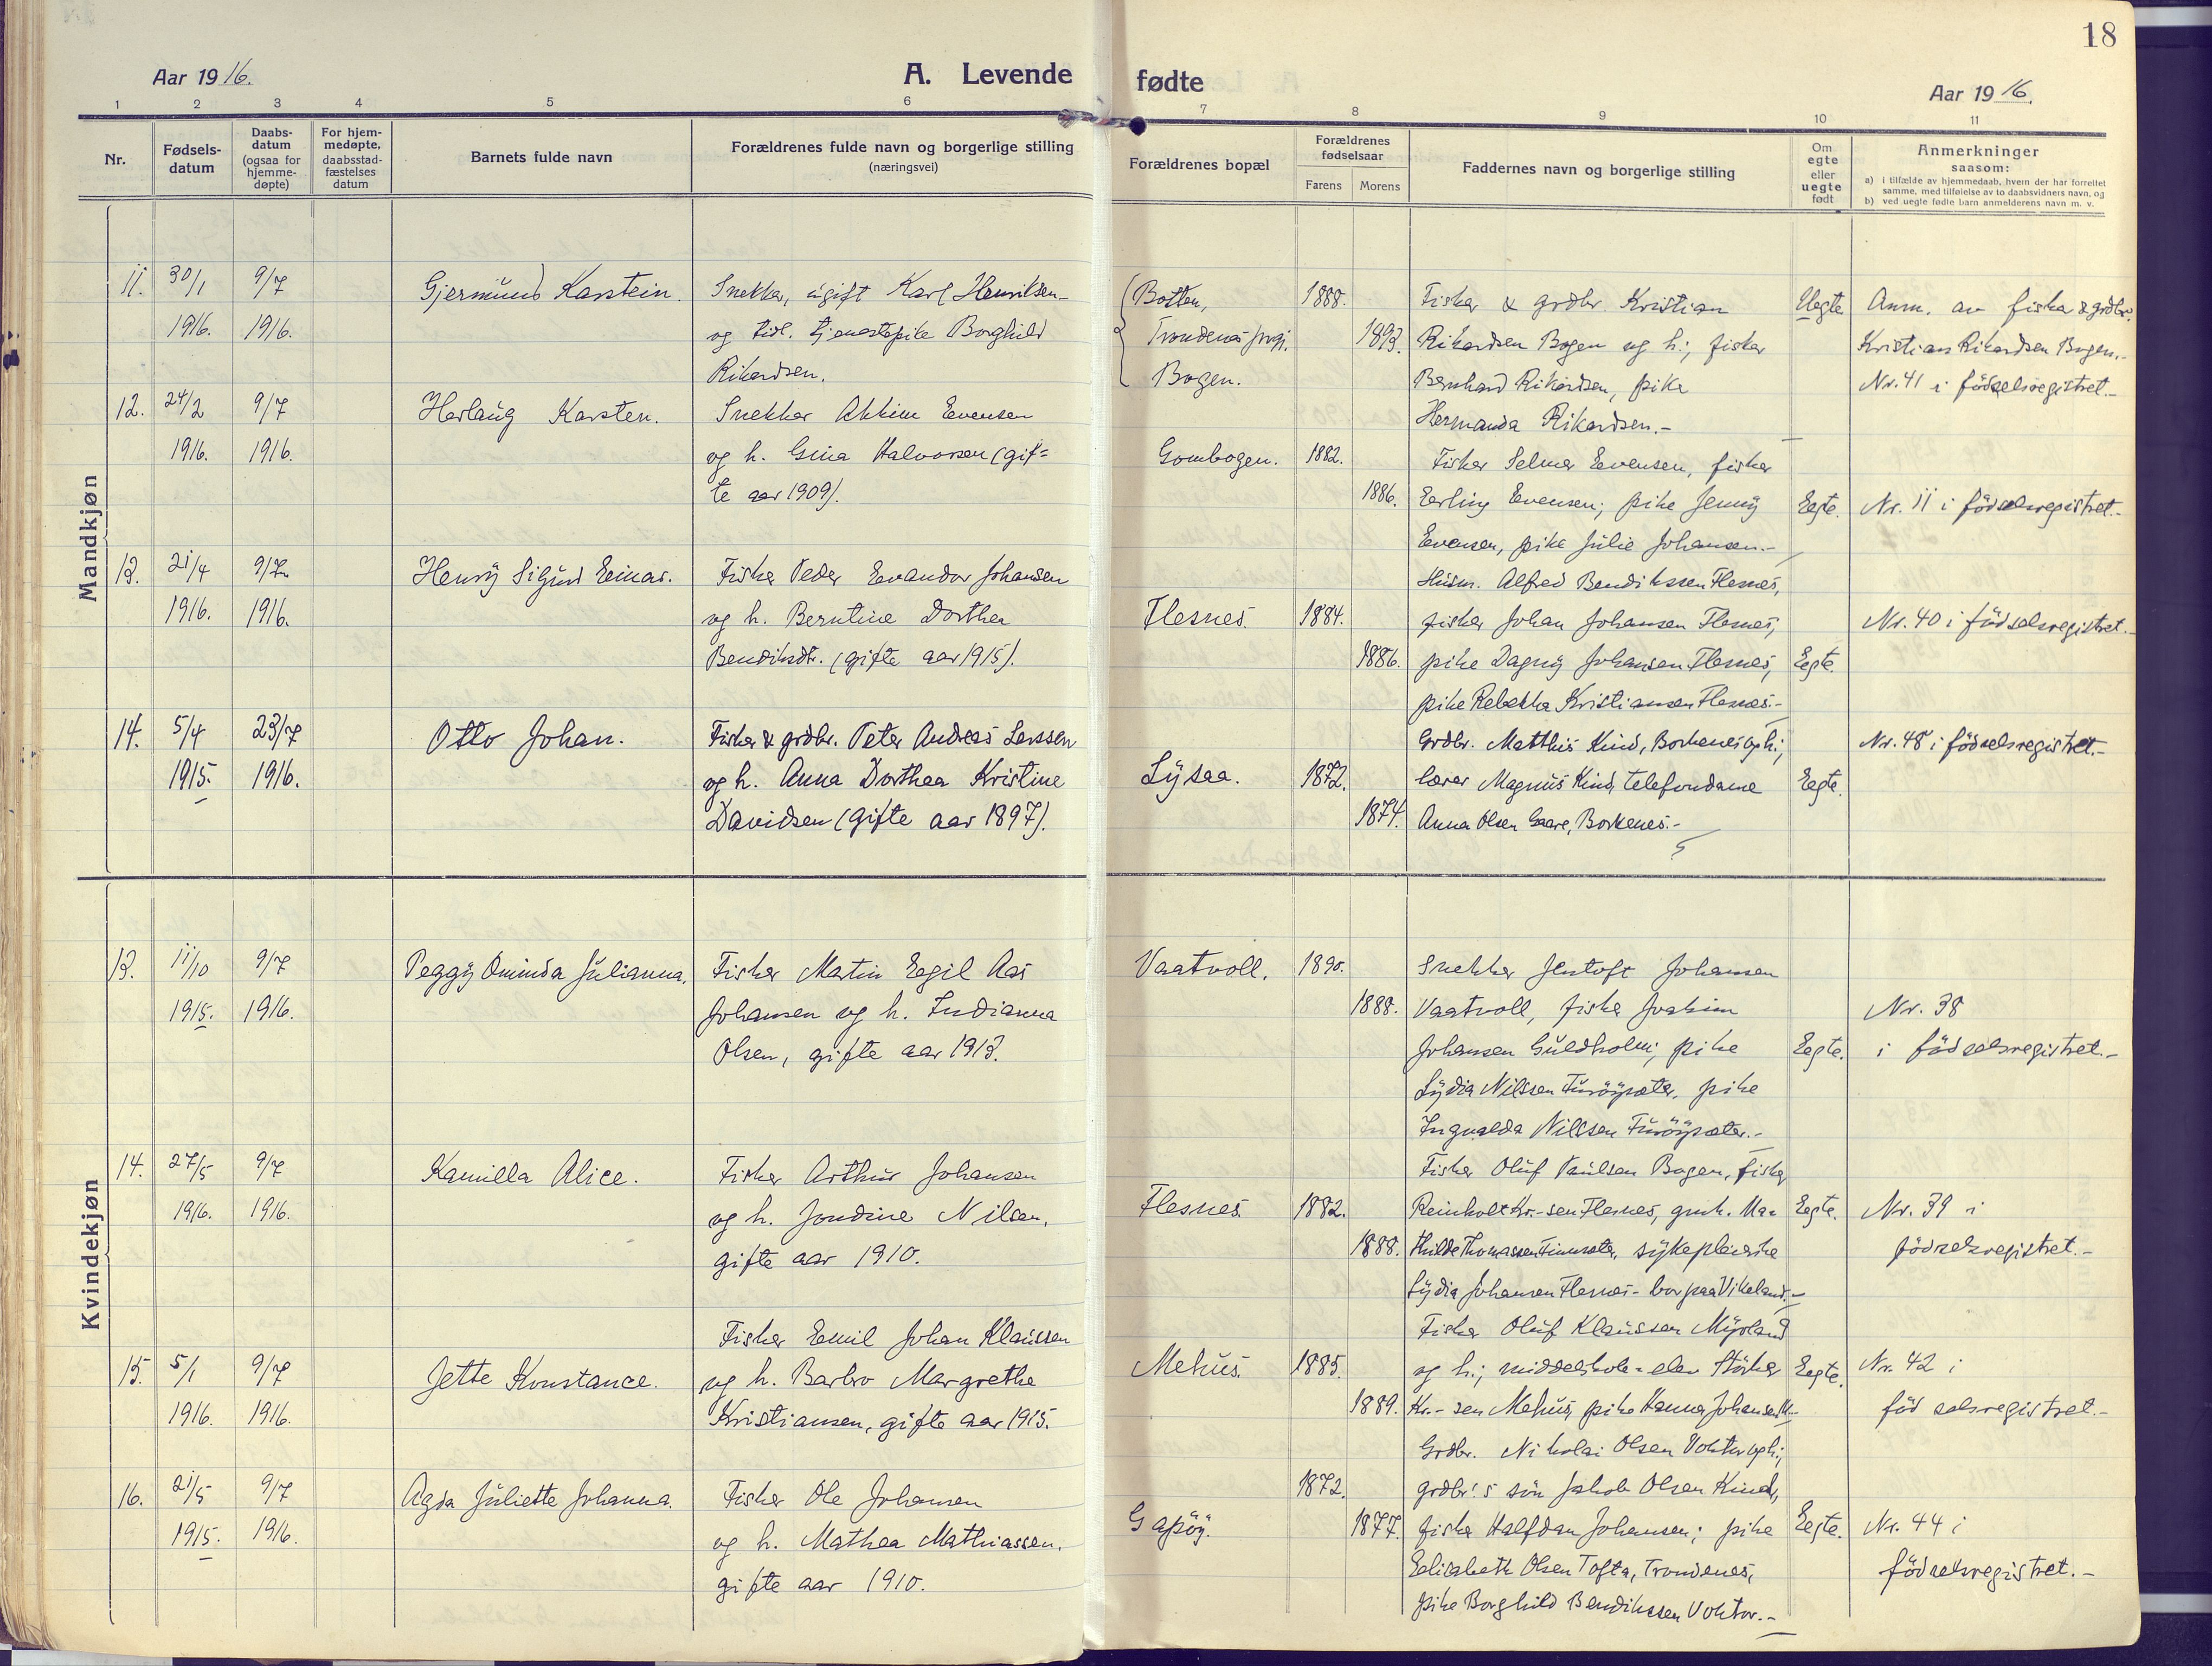 18
Aar 1916.
A. Levende fødte
Aar 1916.
1 2 3 4 5 6 7 8 9 10 11
Nr.
Fødsels-
datum
Daabs-
datum
(ogsaa for
hjemme-
døpte)
For hjem-
medøpte,
daabsstad-
fæstelses
datum
Barnets fulde navn
Forældrenes fulde navn og borgerlige stilling
(næringsvei)
Forældrenes bopæl
Forældrenes
fødselsaar
Farens Morens
Faddernes navn og borgerlige stilling
Om
egte
eller
uegte
født
Anmerkninger
saasom:
a) i tilfælde av hjemmedaab, hvem der har forrettet
samme, med tilføielse av to daabsvidners navn, og
b) ved uegte fødte barn anmelderens navn m. v.
Mandkjøn
11. 30/1 1916. 9/7 1916.
Gjermund Karstein.
Snekker, ugift Karl Henriksen
og tidl. tjenestepike Borghild
Rikardsen.
Botten,
Trondenes prgj.
Bogen.
1888.
1893.
Fisker & grdbr. Kristian
Rikardsen Bogen og h.; fisker
Bernhard Rikardsen, pike
Hermanda Rikardsen.-
Uegte
Anm. av fisker & grdbr.
Kristian Rikardsen Bogen.-
Nr. 41 i födselsregistret.-
12. 24/2 1916. 9/7 1916.
Herlaug Karsten.
Snekker Akkim Evensen
og h. Gina Halvorsen (gif=
te aar 1909).
Gombogen.
1882.
1886.
Fisker Selmer Evensen, fisker
Erling Evensen; pike Jenny
Evensen, pike Julie Johansen.-
Egte.
Nr. 11 i födselsregistret.-
13. 21/4 1916. 9/7 1916.
Henry Sigurd Einar.
Fisker Peder Evandor Johansen
og h. Berntine Dorthea
Bendiksdtr. (gifte aar 1915).
Flesnes.
1884.
1886.
Husm. Alfred Bendikssen Flesnes,
fisker Johan Johansen Flesnes,
pike Dagny Johansen Flesnes,
pike Rebekka Kristiansen Flesnes.-
Egte.
Nr. 40 i födselsregistret.-
14. 5/4 1915. 23/7 1916.
Otto Johan.
Fisker & grdbr. Peter Andreas Larssen
og h. Anna Dorthea Kristine
Davidsen (gifte aar 1897).
Lysaa.
1872.
1874.
Grdbr. Matthis Kind, Borkenes og h.;
lærer Magnus Kind, telefondame
Anna Olsen Gaare, Borkenes.-
Egte.
Nr. 48 i födselsregistret.-
Kvindekjøn
13. 11/10 1915. 9/7 1916.
Peggy Ominda Julianna.
Fisker Martin Egil Aas
Johansen og h. Indianna
Olsen, gifte aar 1913.
Vaatvoll.
1890.
1888.
Snekker Jentoft Johansen
Vaatvoll, fisker Joakim
Johansen Guldholm; pike
Lydia Nilssen, pike
Ingvalda Nilssen
Egte.
Nr. 38
i födselsregistret.-
14. 27/5 1916. 9/7 1916.
Kamilla Alice.
Fisker Arthur Johansen
og h. Jondine Nilsen,
gifte aar 1910.
Flesnes.
1882.
1888.
Fisker Oluf Paulsen Bogen, fisker
Reinholt Kr.-sen Flesnes, gmk. Ma=
thilde Thomassen, sykepleierske
Lydia Johansen Flesnes - bor paa Vikeland.-
Egte.
Nr. 39 i
födselsregistret.-
15. 5/1 1916. 9/7 1916.
Jette Konstance.
Fisker Emil Johan Klaussen
og h. Barbro Margrethe
Kristiansen, gifte aar 1915.
Mehus.
1885.
1889.
Fisker Oluf Klaussen Myrland
og h.; middelskole-elev Störker
Kr.-sen Mehus, pike Hanna Johansen
Egte.
Nr. 42 i
födselsregistret.-
16. 21/5 1915. 9/7 1916.
Agda Juliette Johanna.
Fisker Ole Johansen
og h. Mathea Mathiassen,
gifte aar 1910.
Gapöy.
1872.
1877.
Grdbr. Nikolai Olsen Voktor og h.;
grdbr's sön Jakob Olsen Kind,
fisker Halfdan Johansen; pike
Elisabeth Olsen Tofta, Trondenes,
pike Borghild Bendikssen Voktor.-
Egte.
Nr. 44 i
födselsregistret.-